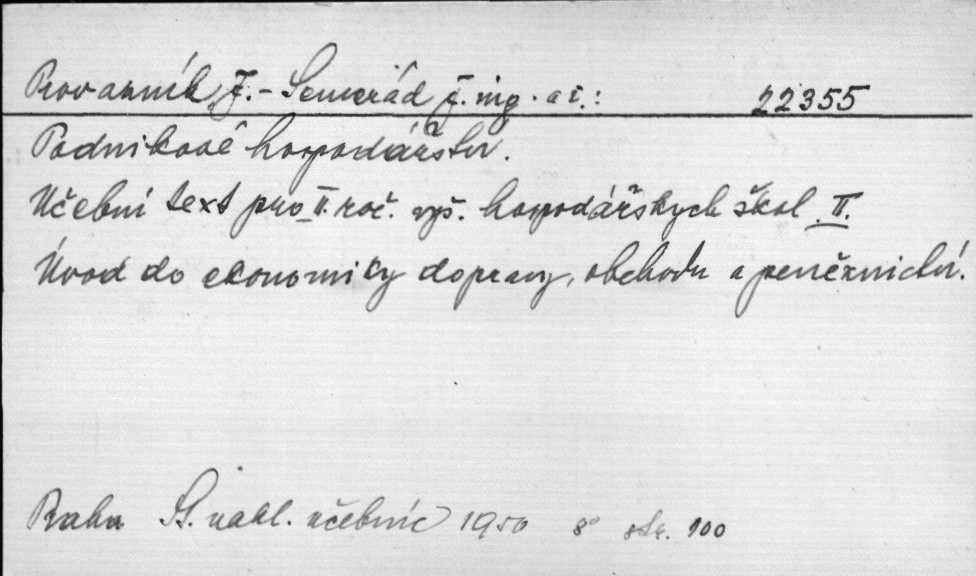 Provazník, J. - Semerád J. ing. a i.: 22355
Podnikové hospodářství.
Učební text pro II. roč. vyš. hospodářských škol II.
Úvod do ekonomiky dopravy, obchodu a peněžnictví.
Praha St. nakl. učebnic 1950 8° str. 100